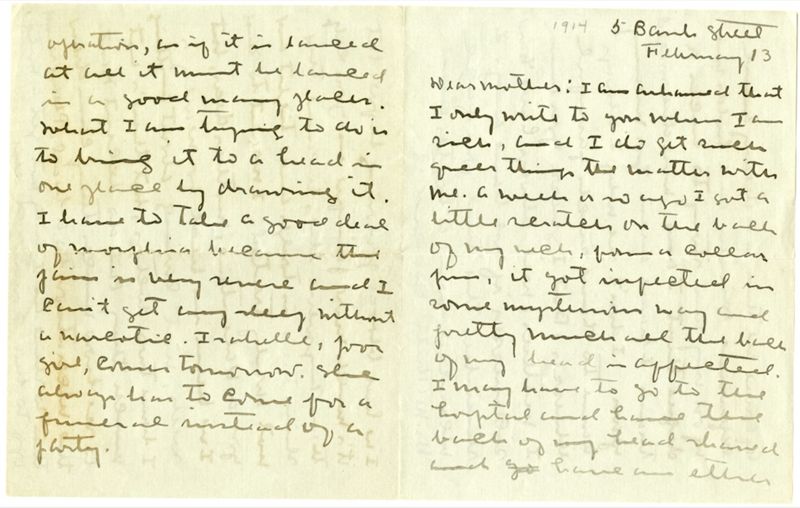 1914
5 Bank Street
February 13
Dear mother: I am ashamed that
I only write to you when I am
sick, and I do get such
queer things the matter with
me. A week or so ago I got a
little scratch on the back
of my neck, from a collar
pin, it got infected in
some mysterious way and
pretty much all the back
of my head is affected.
I may have to go to the
hospital and have the
back of my head shaved
and go have an ether
operation, as if it is lanced
at all it must be lanced
in a good many places.
What I am trying to do is
to bring it to a head in
one place by drawing it.
I have to take a good deal
of morphia because the
pain is very severe and I
can't get any sleep without
a narcotic. Isabelle, poor
girl, comes tomorrow. She
always has to come for a
funeral instead of a
party.